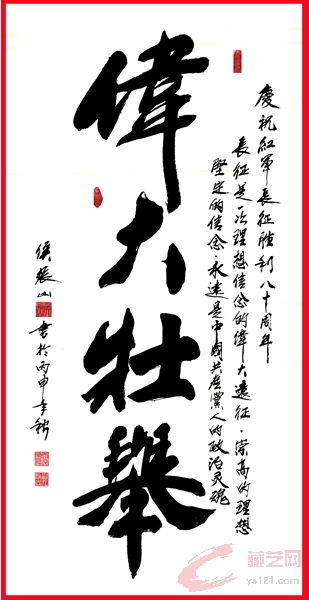 慶祝紅軍長征勝利八十周年
長征是一次理想信念的偉大遠征·崇高的理想
堅定的信念·永遠是中國共産黨人的政治灵魂
偉大壯舉
侯振山書於丙申年秋
藏艺网
ys121.com